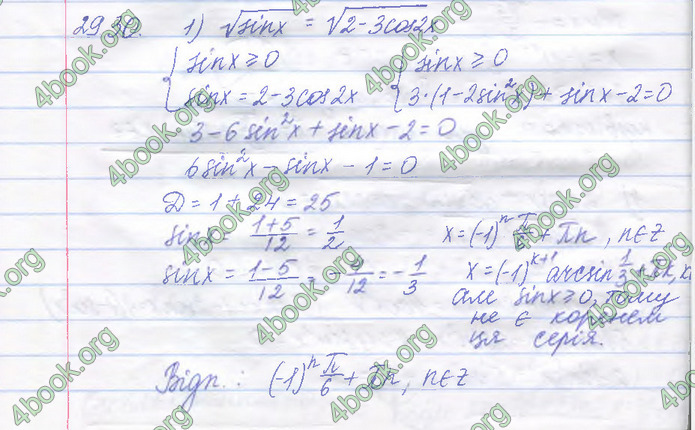 29.30. 1) √sinx = √2-3cos2x
{ sinx ≥ 0 { sinx ≥ 0
sinx = 2-3cos2x 3·(1-2sin²x) + sinx-2=0
3-6sin²x + sinx-2=0
6sin²x - sinx - 1 = 0
D = 1+24 = 25
sinx = (1+5)/12 = 1/2 x = (-1)ⁿ π/6 + πn, n∈Z
sinx = (1-5)/12 = -4/12 = -1/3 x = (-1)^(k+1) arcsin 1/3 + πk, k
але sinx ≥ 0, тому
не є коренем
ця серія.
Відп.: (-1)ⁿ π/6 + πn, n∈Z
4book.org